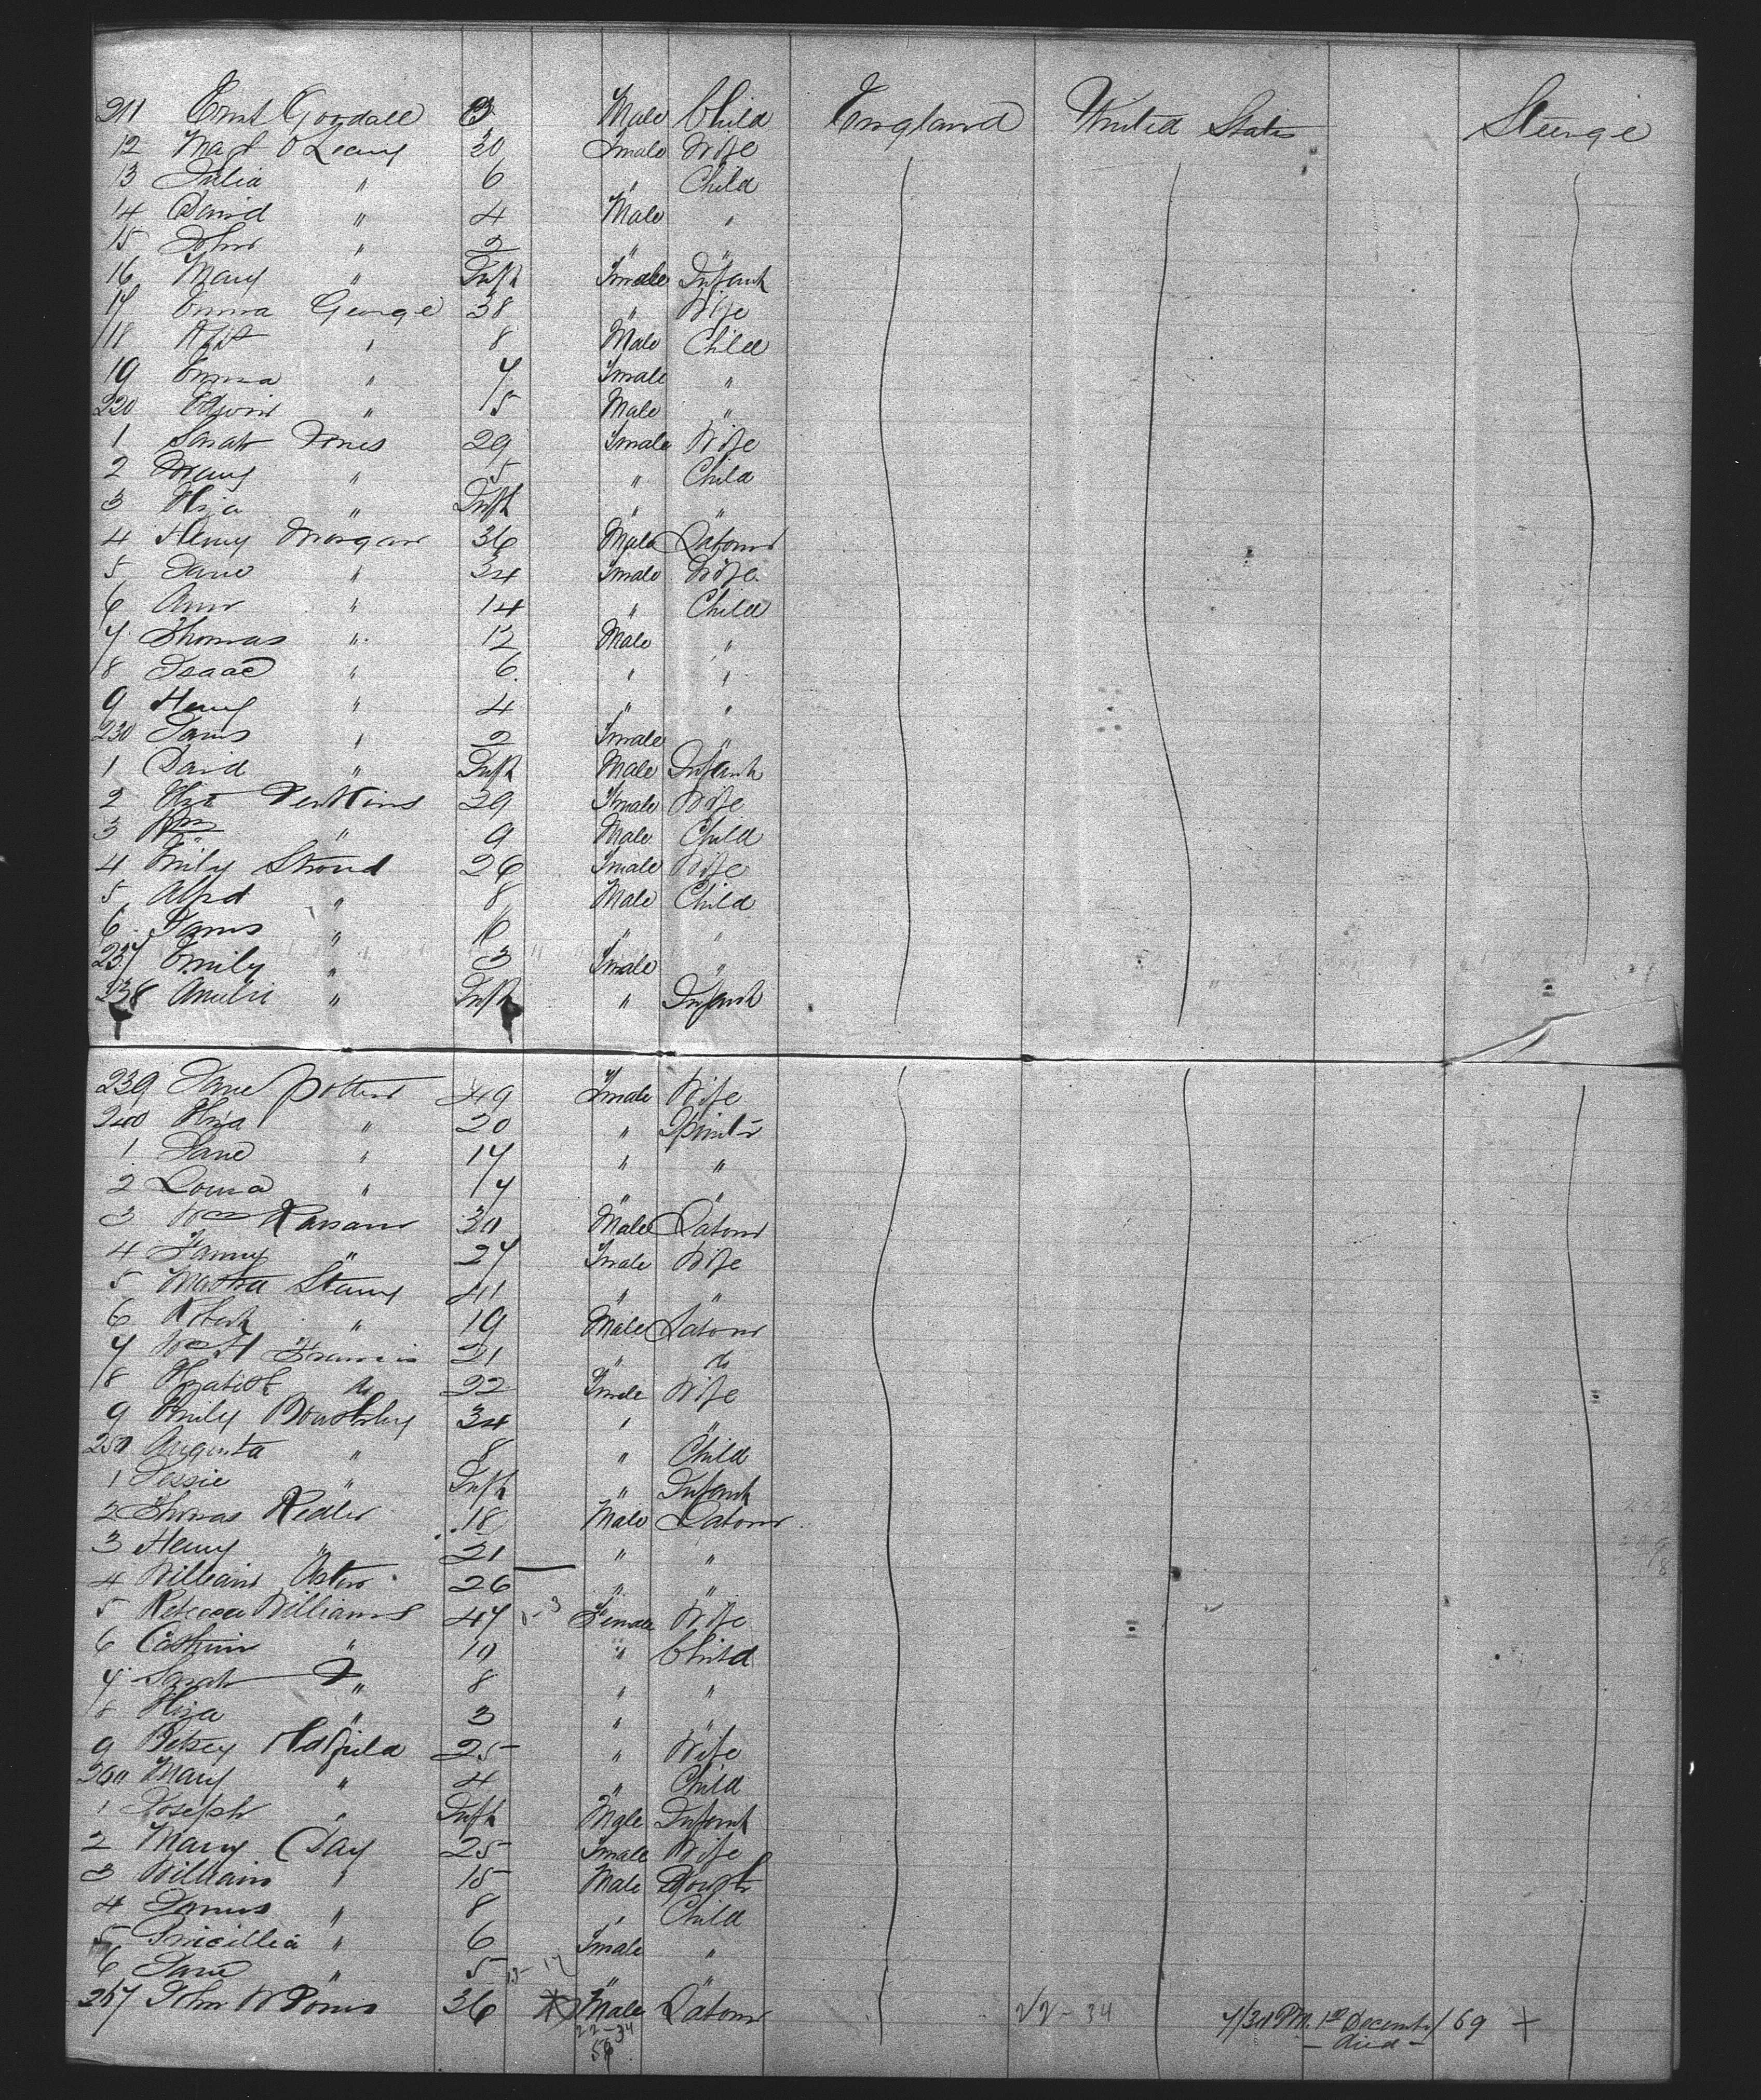 211 Ernst Goodall 3 Male Child England United States Steerage
12 Margt O'Leary 30 Female Wife
13 Julia " 6 " Child
14 David " 4 Male "
15 John " 2 " "
16 Mary " Inft Female Infant
17 Emma George 38 " Wife
18 " 8 Male Child
19 Emma " 7 Female "
220 Edwin " 5 Male "
1 Sarah Jones 29 Female Wife
2 Mary " 5 " Child
3 Eliza " Inft " "
4 Henry Morgan 36 Male Labourer
5 Jane " 34 Female Wife
6 Ann " 14 " Child
7 Thomas " 12 Male "
8 Isaac " 6 " "
9 Henry " 4 " "
230 " 2 Female "
1 David " Inft Male Infant
2 Eliz Perkins 29 Female Wife
3 Wm " 9 Male Child
4 Emily Stroud 26 Female Wife
5 Alfd " 8 Male Child
6 James " 6 " "
237 Emily " 3 Female "
238 Amelia " Inft " Infant
239 Jane Potter 49 Female Wife
240 Eliza " 20 " Spinstr
1 Jane " 17 " "
2 Louisa " 17 " "
3 Wm 30 Male Labourer
4 Fanny " 27 Female Wife
5 Martha 41 " "
6 Robert " 19 Male Labourer
7 Wm H Francis 21 " do
8 Elizabeth do 22 Female Wife
9 Emily 34 " "
250 Augusta " 8 " Child
1 Jessie " Inft " Infant
2 Thomas Redler 18 Male Labourer
3 Henry " 21 " "
4 William 26 " "
5 Rebecca Williams 47 Female Wife
6 " 10 " Child
7 Sarah J " 8 " "
8 Eliza " 3 " "
9 Betsey Hatfield 25 " Wife
260 Mary " 4 " Child
1 Joseph " Inft Male Infant
2 Mary Day 25 Female Wife
3 William " 15 Male
4 James " 8 " Child
5 Pricillia " 6 Female "
6 Jane " 5 " "
267 John W 36 Male Labourer 22-34 7/30 PM. 1st December/69 +
22-34 - died -
56